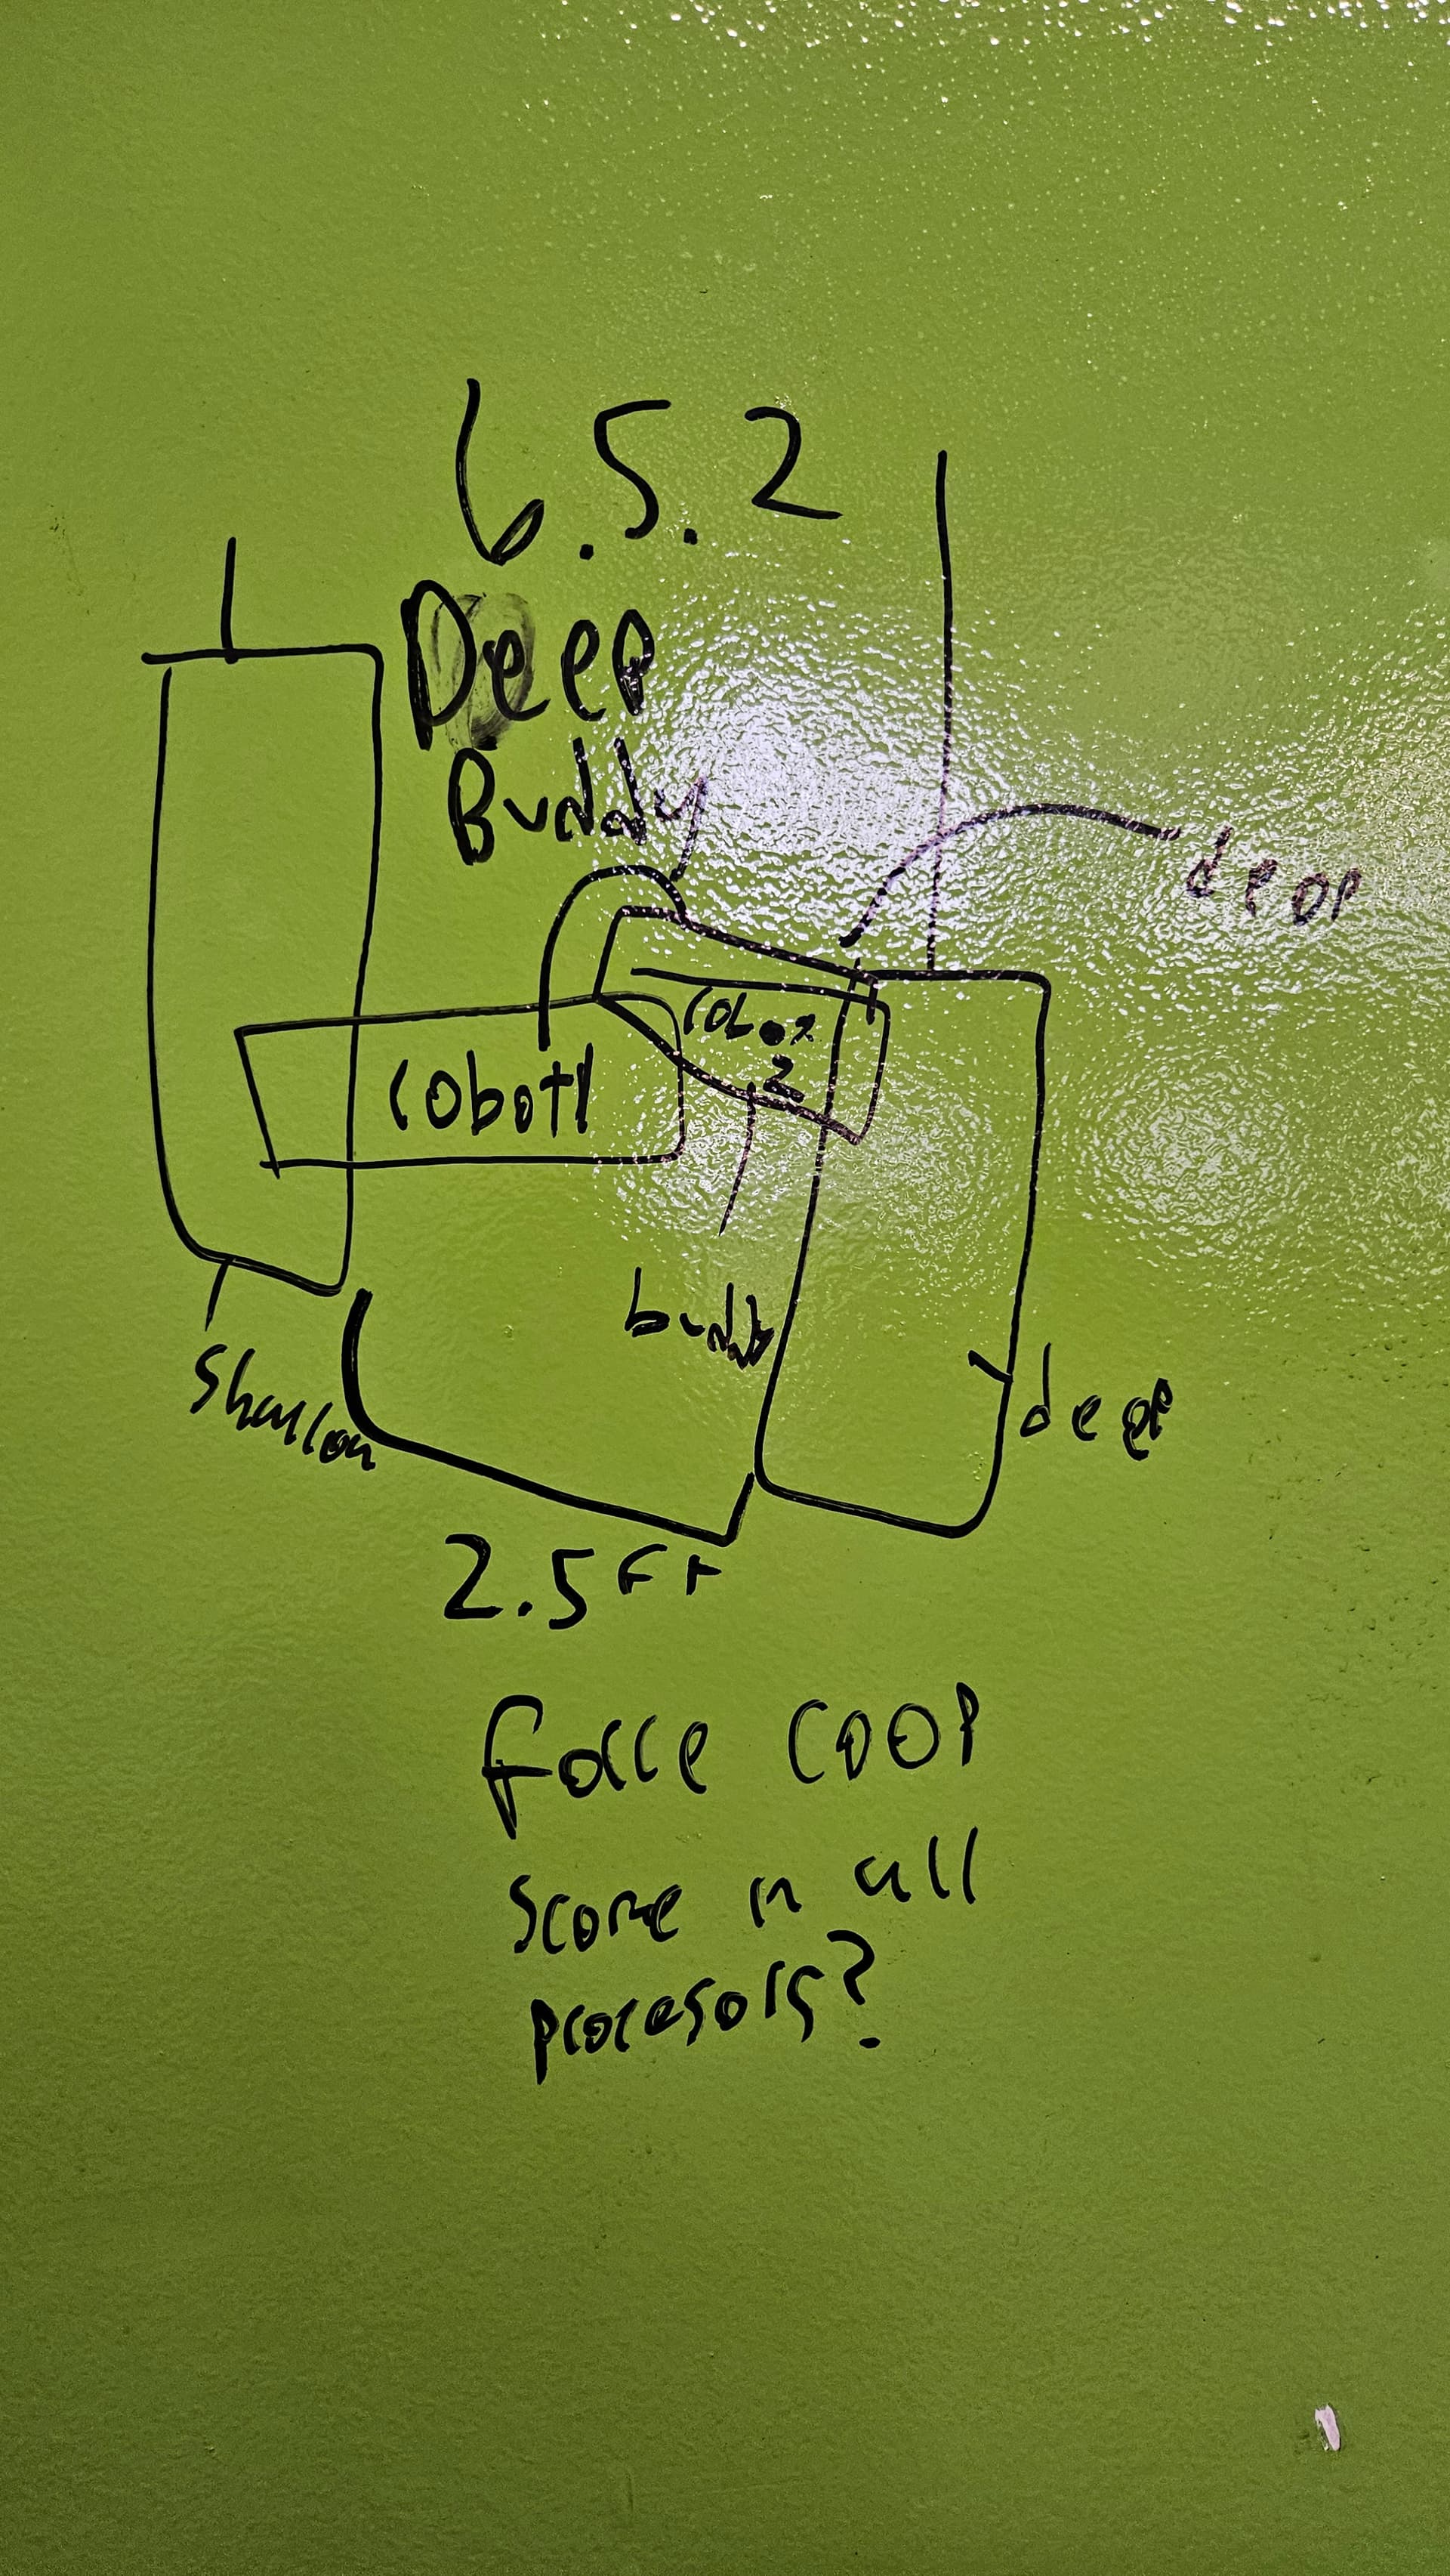 6.5.2
Deep
Buddy
deep
robot 1
robot
2
buddy
Shallow
deep
2.5 FT
force COOP
Score in all
procesors?